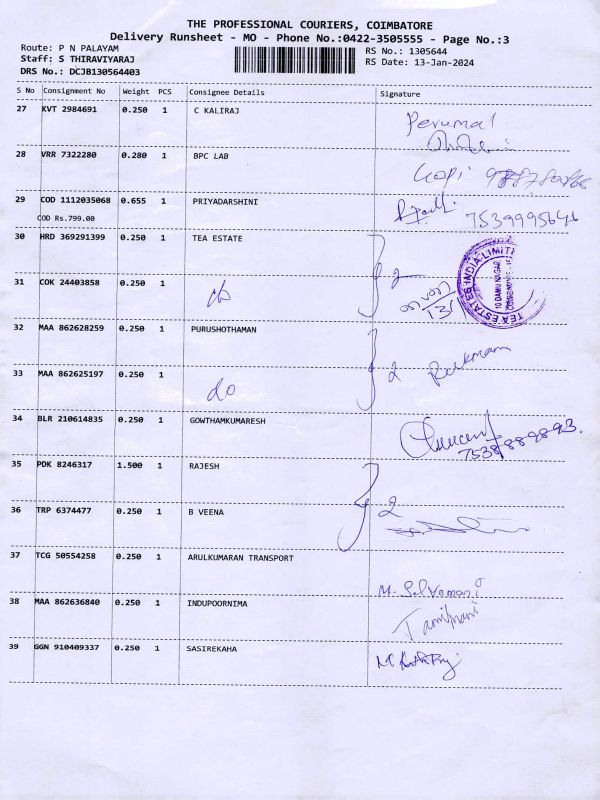 THE PROFESSIONAL COURIERS, COIMBATORE
Delivery Runsheet - MO - Phone No.:0422-3505555 - Page No.:3
Route: P N PALAYAM
RS No.: 1305644
Staff: S THIRAVIYARAJ
RS Date: 13-Jan-2024
DRS No.: DCJB130564403
S No Consignment No Weight PCS Consignee Details Signature
27 KVT 2984691 0.250 1 C KALIRAJ Perumal
28 VRR 7322280 0.280 1 BPC LAB Gopi
29 COD 1112035068 0.655 1 PRIYADARSHINI 7539995646
COD Rs.799.00
30 HRD 369291399 0.250 1 TEA ESTATE
2
TEA ESTATES INDIA LIMITED
10 DAMU NAGAR
31 COK 24403858 0.250 1 do
32 MAA 862628259 0.250 1 PURUSHOTHAMAN
2 Rukmani
33 MAA 862625197 0.250 1 do
34 BLR 210614835 0.250 1 GOWTHAMKUMARESH
7538889893.
35 PDK 8246317 1.500 1 RAJESH
2
36 TRP 6374477 0.250 1 B VEENA
37 TCG 50554258 0.250 1 ARULKUMARAN TRANSPORT
M. Selvamani
38 MAA 862636840 0.250 1 INDUPOORNIMA
39 GGN 910409337 0.250 1 SASIREKAHA